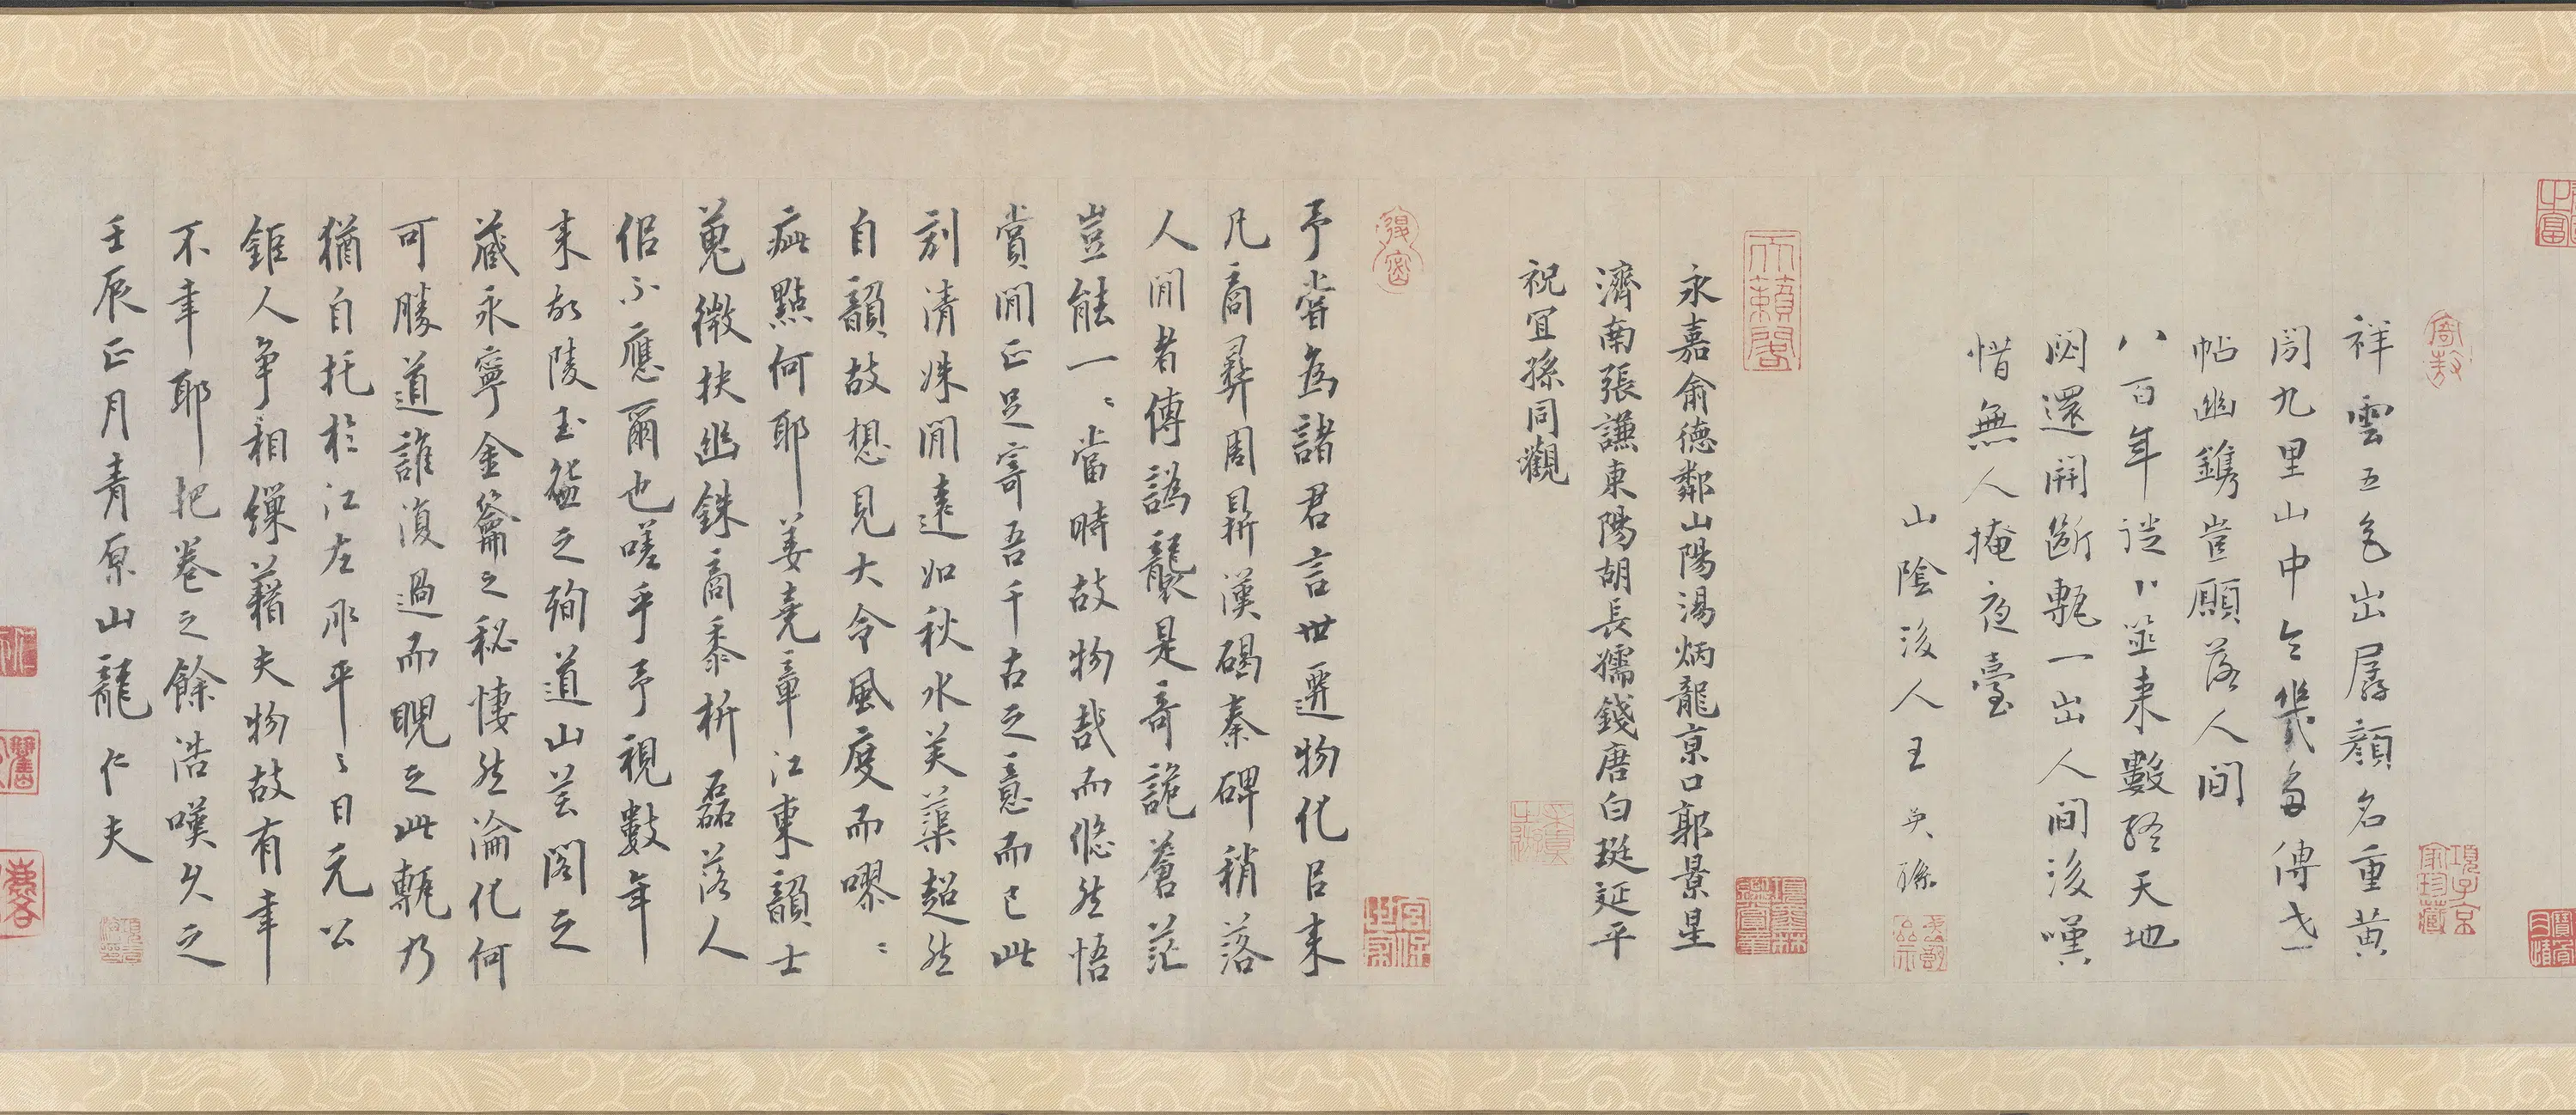 祥雲五色出孱顏名重黃
閍九里山中今幾多傳弋一
帖幽鐫豈願落人間
八百年從〻筮來數終天地
閟還開斷甎一出人間後嘆
惜無人掩夜臺
山陰後人王英孫
天籟閣
永嘉俞德鄰山陽湯炳龍京口郭景星
濟南張謙東陽胡長孺錢唐白珽延平
祝宜孫同觀
予嘗為諸君言世遷物化呂來
凡商彞周鼎漢碣秦碑稍落
人間者傳譌襲是奇詭蒼茫
豈能一〻當時故物哉而悠然悟
賞間正足寄吾千古之意而已此
刻清姝閒遠如秋水美蕖超然
自韻故想見大令風度而嘐〻
疵點何耶姜堯章江東韻士
蒐微抉幽銖商黍析磊落人
侶不應爾也嗟乎予視數年
來故陵玉盌之殉道山芸閣之
藏永寧金籥之秘悽然淪化何
可勝道誰復過而睨之此甎乃
猶自托於江左那平〻日元公
鉅人爭相繅藉夫物故有幸
不幸耶把卷之餘浩嘆久之
壬辰正月青原山龍仁夫